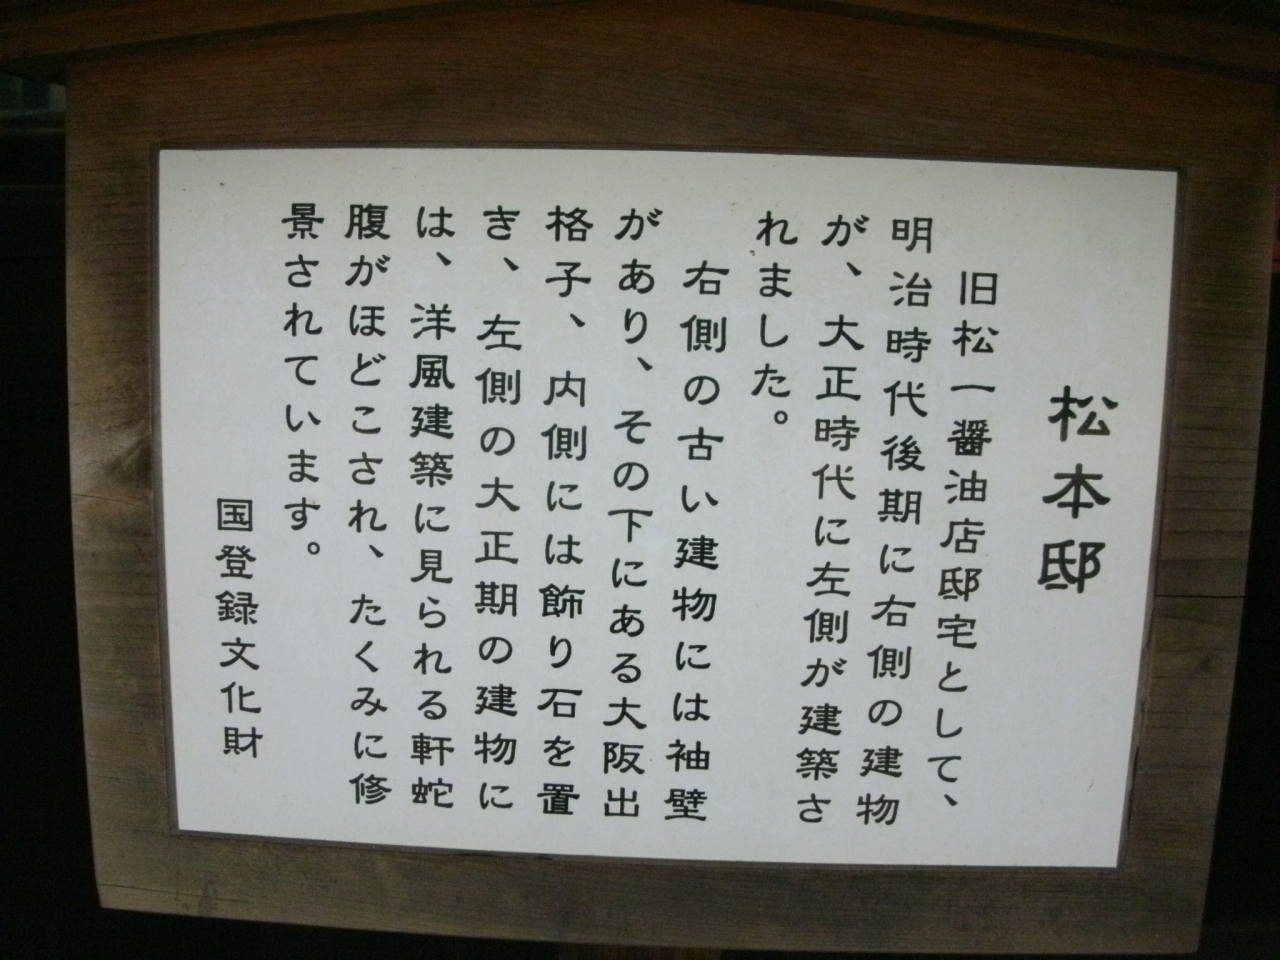 松本邸
旧松一醤油店邸宅として、
明治時代後期に右側の建物
が、大正時代に左側が建築さ
れました。
右側の古い建物には袖壁
があり、その下にある大阪出
格子、内側には飾り石を置
き、左側の大正期の建物に
は、洋風建築に見られる軒蛇
腹がほどこされ、たくみに修
景されています。
国登録文化財